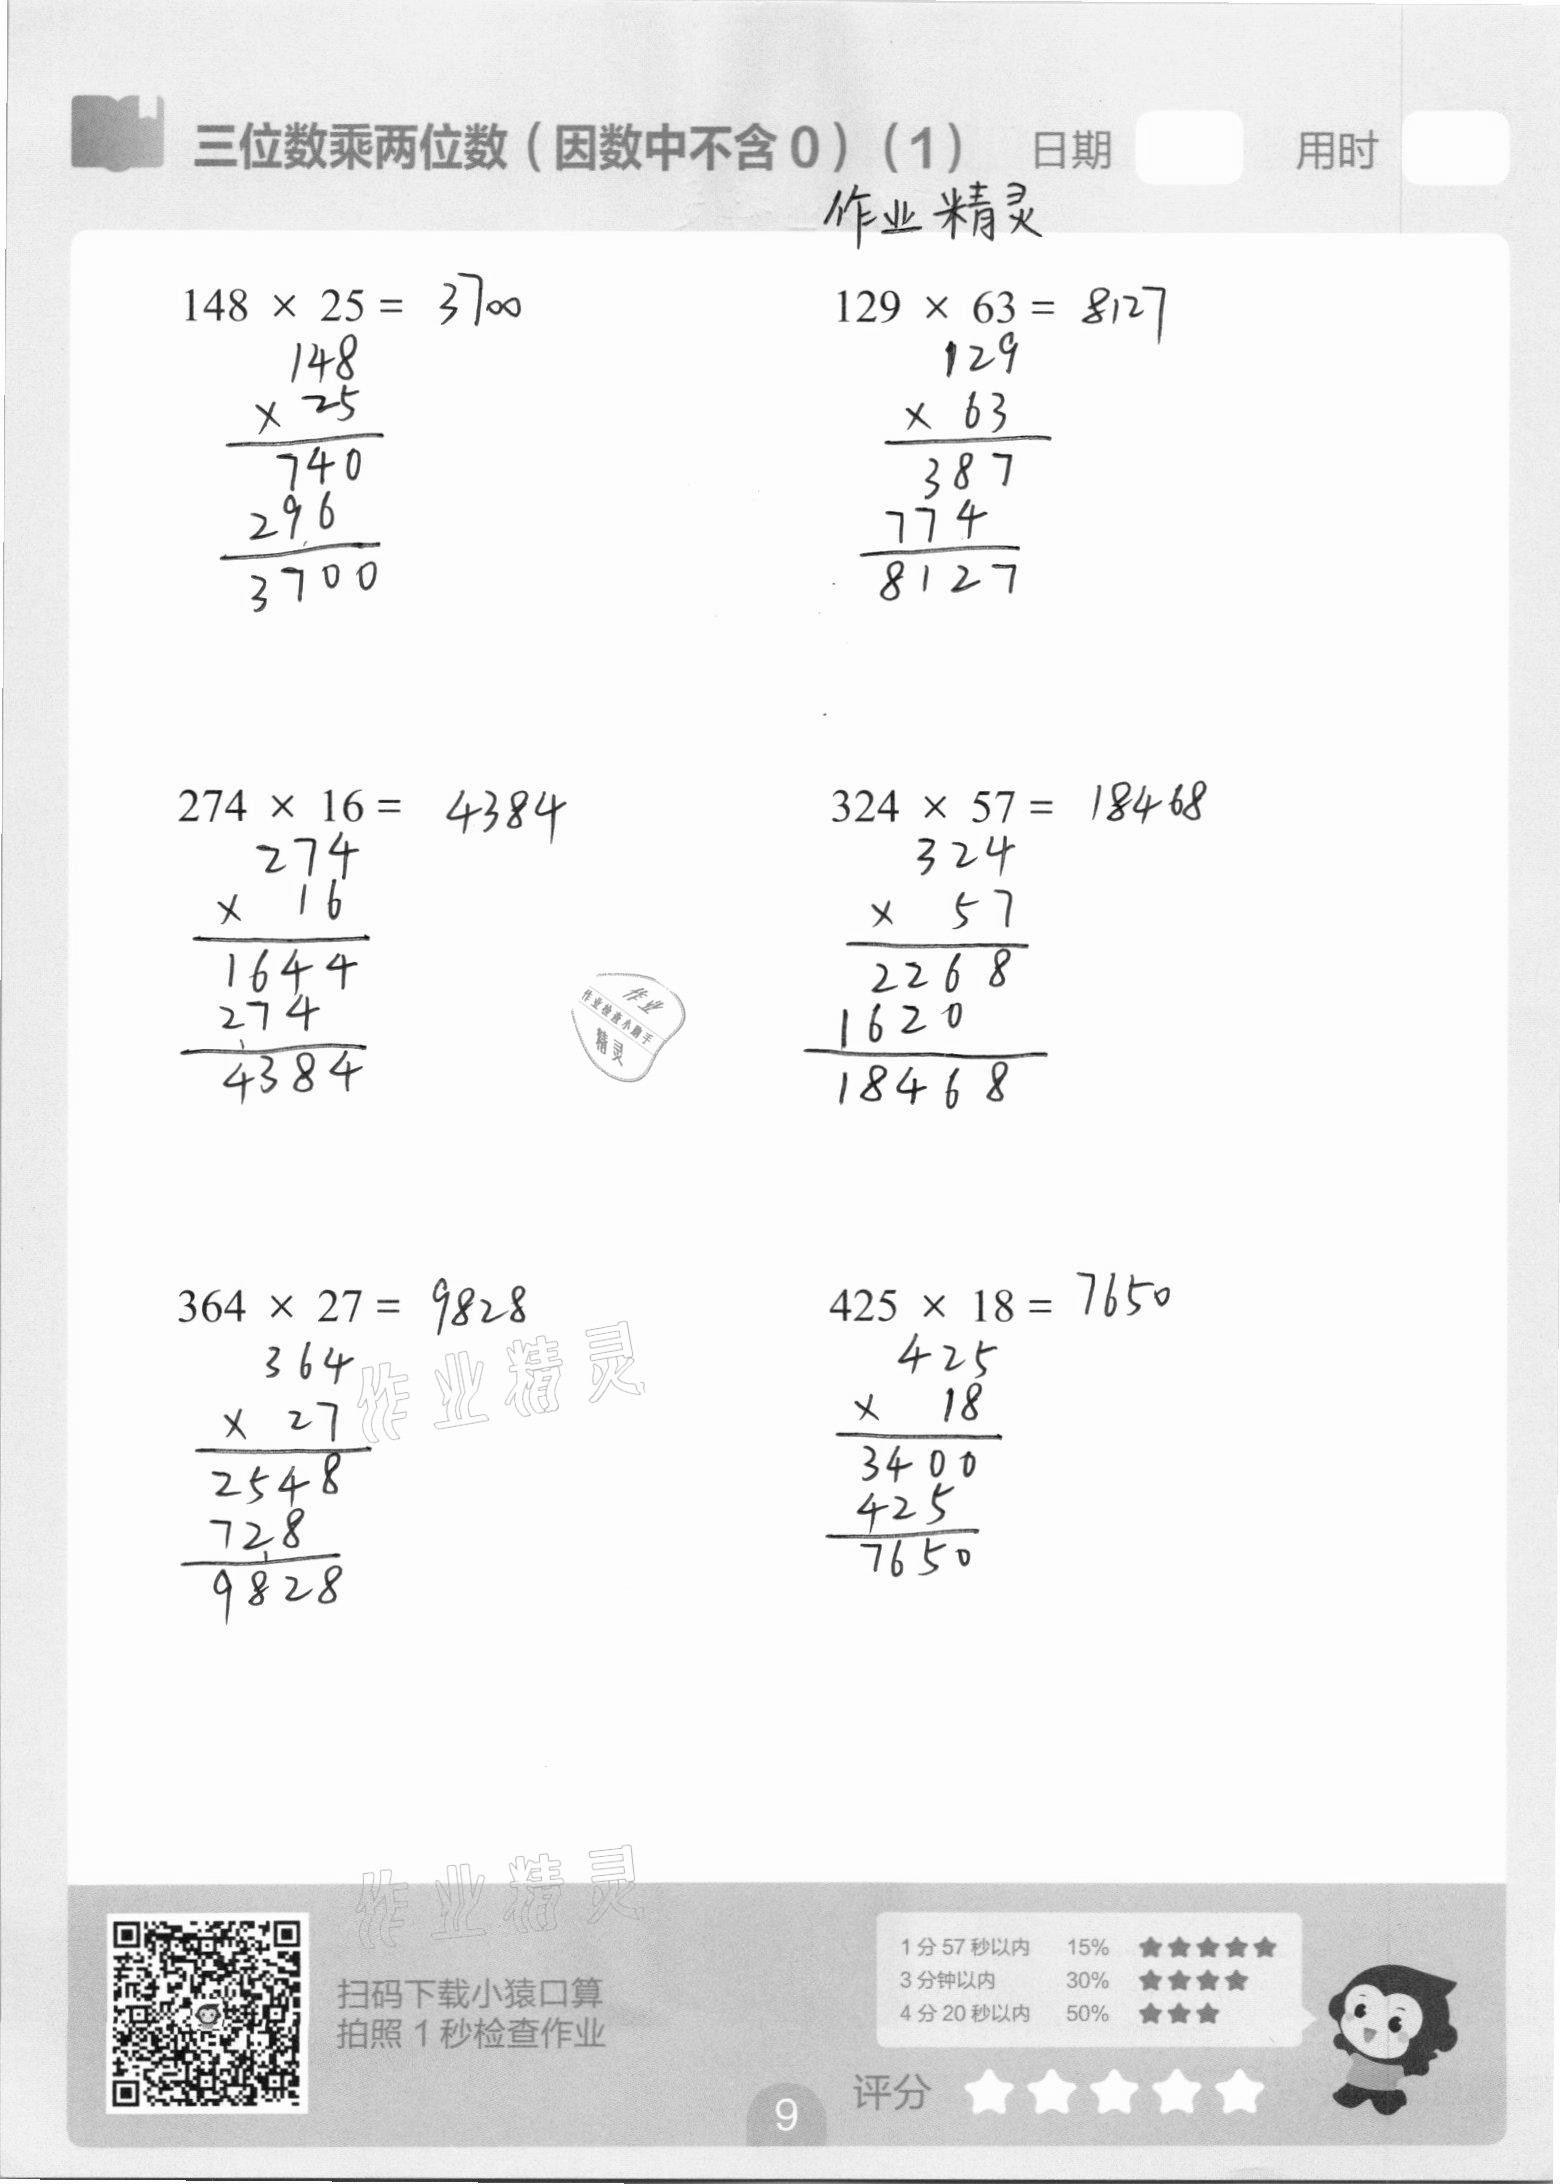 三位数乘两位数（因数中不含0）（1） 日期 用时
作业精灵
148 × 25 = 3700
148
× 25
740
296
3700
129 × 63 = 8127
129
× 63
387
774
8127
274 × 16 = 4384
274
× 16
1644
274
4384
324 × 57 = 18468
324
× 57
2268
1620
18468
作业
作业检查小助手
精灵
364 × 27 = 9828
364
× 27
2548
728
9828
425 × 18 = 7650
425
× 18
3400
425
7650
作业精灵
作业精灵
扫码下载小猿口算
拍照1秒检查作业
1分57秒以内 15% ★★★★★
3分钟以内 30% ★★★★
4分20秒以内 50% ★★★
评分
9